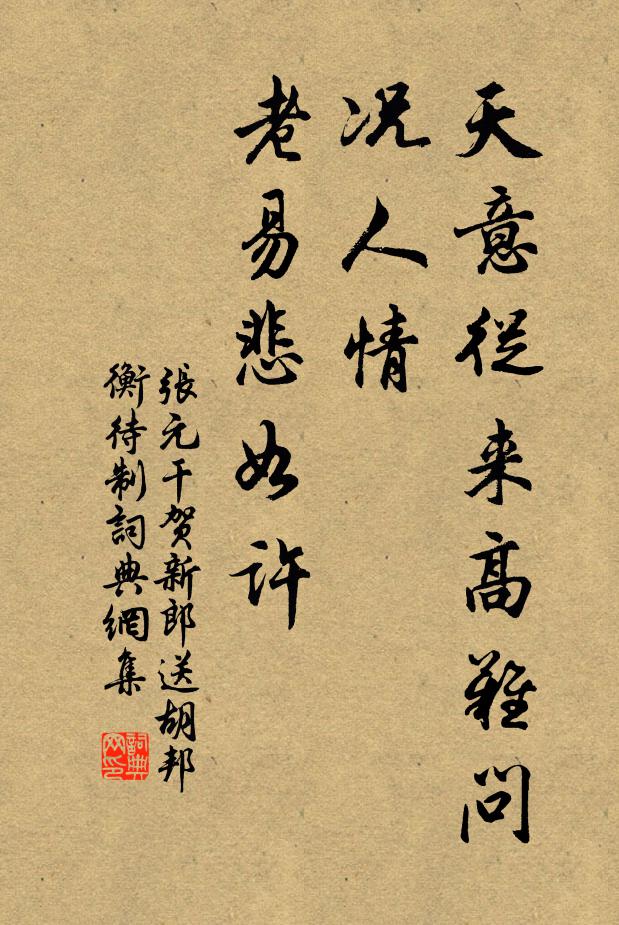 天意從来高難問
况人情
老易悲如許
張元干贺新郎送胡邦
衡待制詞典網集
詞典网印